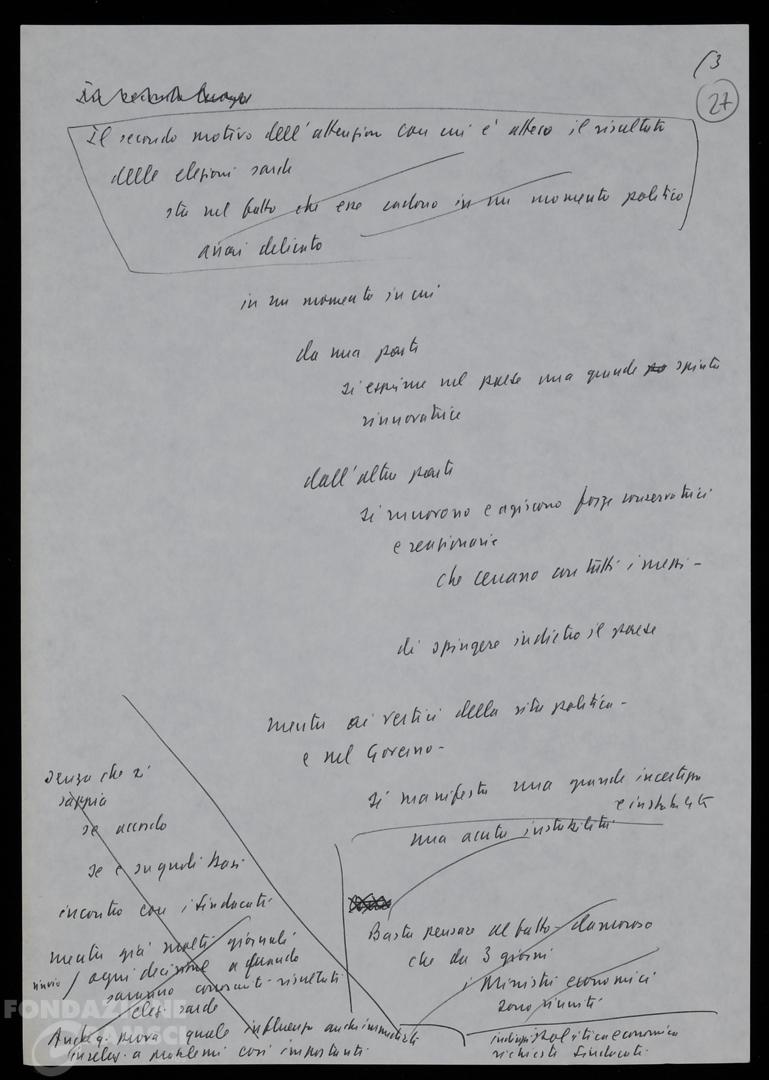 /3
27
Il secondo motivo dell'attenzion con cui è atteso il risultato
delle elezioni sarde
sta nel fatto che esse cadono in un momento politico
assai delicato
in un momento in cui
da una parte
si esprime nel paese una grande spinta
rinnovatrice
dall'altra parte
si muovono e agiscono forze conservatrici
e reazionarie
che cercano con tutti i mezzi -
di spingere indietro il paese
mentre ai vertici della vita politica -
e nel Governo -
si manifesta una grande incertezza
e instabilità
una acuta instabilità
Basta pensare al fatto clamoroso
che da 3 giorni
i Ministri economici
sono riuniti
politica economica
richieste sindacati
senza che si
sappia
se accordo
se e su quali basi
incontro con i sindacati
mentre già molti giornali
rinvio / ogni decisione a quando
saranno conosciuti risultati
elez. sarde
Anche q. prova quale influenza anche immediata
in relaz. a problemi così importanti
FONDAZIONE
GRAMSCI